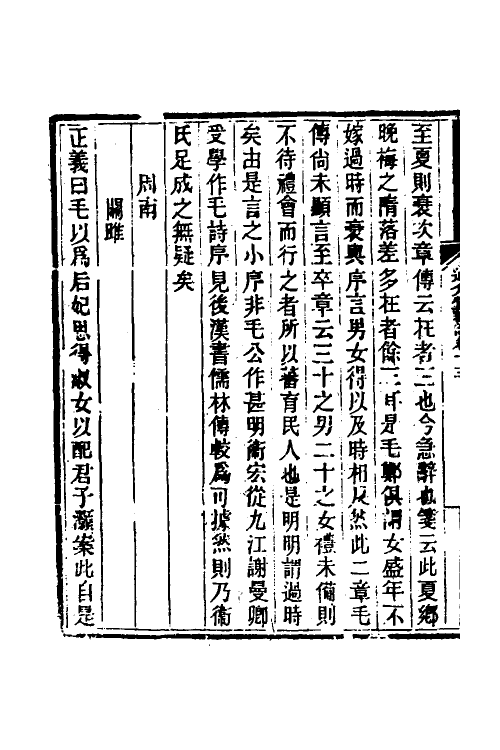 至夏則衰次章傳云在者三也今急辭也箋云此夏鄉
晚梅之隋落差多在者餘三耳是毛鄭俱謂女盛年不
嫁過時而衰與序言男女得以及時相反然此二章毛
傳尚未顯言至卒章云三十之男二十之女禮未備則
不待禮會而行之者所以蕃育民人也是明明謂過時
矣由是言之小序非毛公作甚明衛宏從九江謝曼卿
受學作毛詩序見後漢書儒林傳較爲可據然則乃衞
氏足成之無疑矣
周南
關雎
正義曰毛以爲后妃思得淑女以配君子灝案此自是